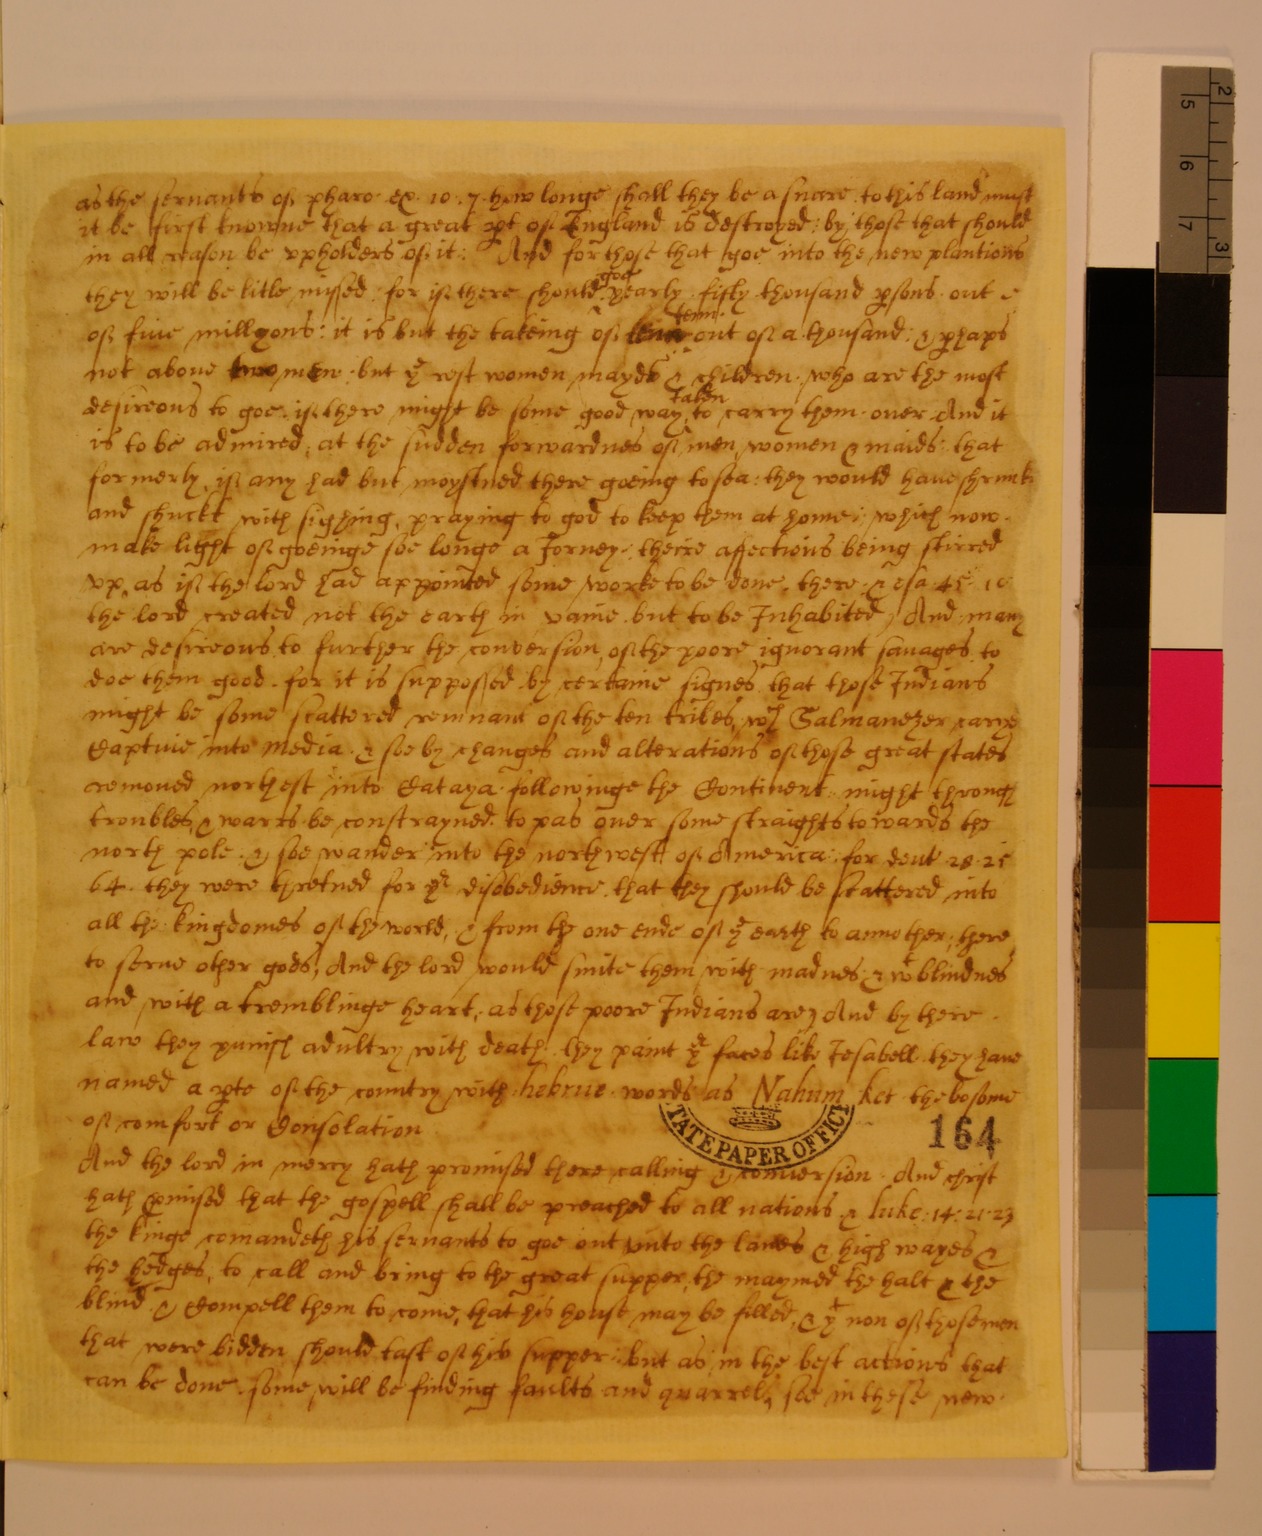 as the servants of pharo . ex . 10 . 7 . how longe shall they be a snare to this land must
it be first knowne that a great pt of England is destroyed : by those that should
in all reason be vpholders of it : And for those that goe into the new plantions
they will be litle missed : for if there should goe yearly . fifty thousand psons . out
of fiue millyons : it is but the takeing of tenn out of a thousand : & phaps
not aboue two men : but ye rest women mayds & children . who are the most
desireous to goe . if there might be some good way taken to carry them . ouer And it
is to be admired , at the sudden forwardnes of men , women & maids : that
formerly , if any had but moyshned there goeing to sea : they would haue shrunk
and shuckt with sighing , praying to god to keep them at home : which now .
make light of goeinge soe longe a Jorney : theire affections being stirred
vp , as if the lord had appointed some worke to be done . there . & esa . 45 .
the lord created not the earth in vaine . but to be Inhabited , And many
are desireous to further the conversion , of the poore ignorant sauages to
doe them good . for it is supposed by certaine signes that those Indians
might be some scattered remnant of the ten tribes , wch Salmanezer carye
Captiuie into media . & soe by changes and alterations of those great states
remoued northest into Cataya followinge the Continent . might through
troubles , & warrs be constrayned . to pas ouer some straights towards the
north pole . & soe wander into the northwest of America : for deut 28 . 25
64 . they were thretned for yr disobedience . that they should be scattered into
all the kingdomes of the world , & from the one ende of ye earth to annother , there
to serue other gods , And the lord would smite them with madnes & wt blindnes
and with a tremblinge heart , as those poore Indians are , And by there .
law they punish adultry with death . they paint yr faces like Jesabell . they haue
named a pte of the country with hebrue . words as Nahum ket the bosome
of comfort or Consolation
TATE PAPER OFFIC
164
And the lord in mercy hath promised there calling & conuersion . And christ
hath pmised that the gospell shall be preached to all nations & luke : 14 : 21 . 23
the kinge comandeth his seruants to goe out vnto the lanes & high wayes &
the hedges , to call and bring to the great supper , the maymed the halt & the
blind . & Compell them to come , that his house may be filled , & yt non of those men
that were bidden should tast of his supper : but as in the best actions that
can be done . some will be finding faults and quarrels , soe in these new .